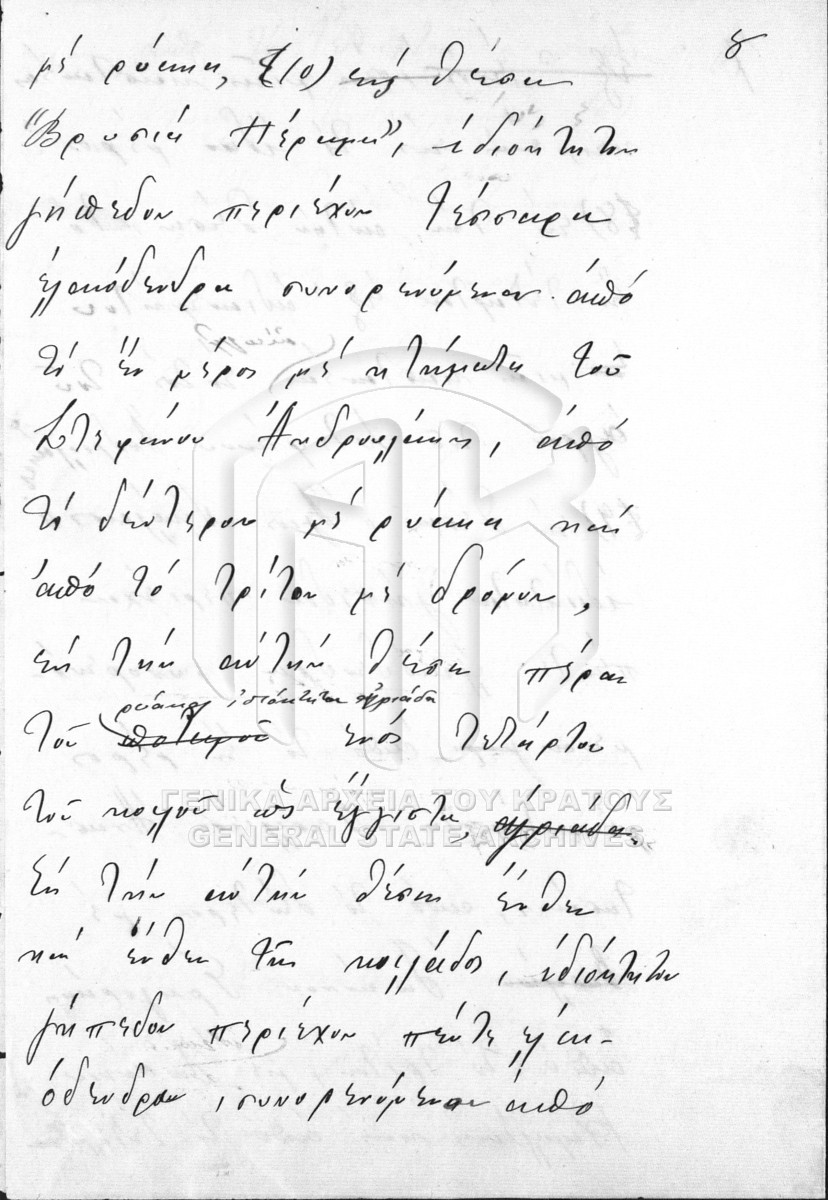 8
μέ ρύακα, ζ(0) εἰς θέσιν
"Βρυσιά Πέραμα", ἰδιόκτητον
γήπεδον περιέχον τέσσαρα
ἐλαιόδενδρα συνορευόμενον ἀπό
τό ἕν μέρος μέ κτήματα τοῦ
Στεφάνου Ἀνδρουλάκης, ἀπό
τό δεύτερον μέ ρύακα καί
ἀπό τό τρίτον μέ δρόμον,
εἰς τήν αὐτήν θέσιν πέραν
ρύακος ἰδιόκτητον ἀγριάδα
τοῦ ποταμοῦ ἑνός τετάρτου
τοῦ κοιλοῦ ὡς ἔγγιστα, ἀγριάδα.
ΓΕΝΙΚΑ ΑΡΧΕΙΑ ΤΟΥ ΚΡΑΤΟΥΣ
GENERAL STATE ARCHIVES
Εἰς τήν αὐτήν θέσιν ἔνθεν
καί ἔνθεν τῆς κοιλάδος, ἰδιόκτητον
γήπεδον περιέχον πέντε ἐλαι-
όδενδρα, συνορευόμενον ἀπό